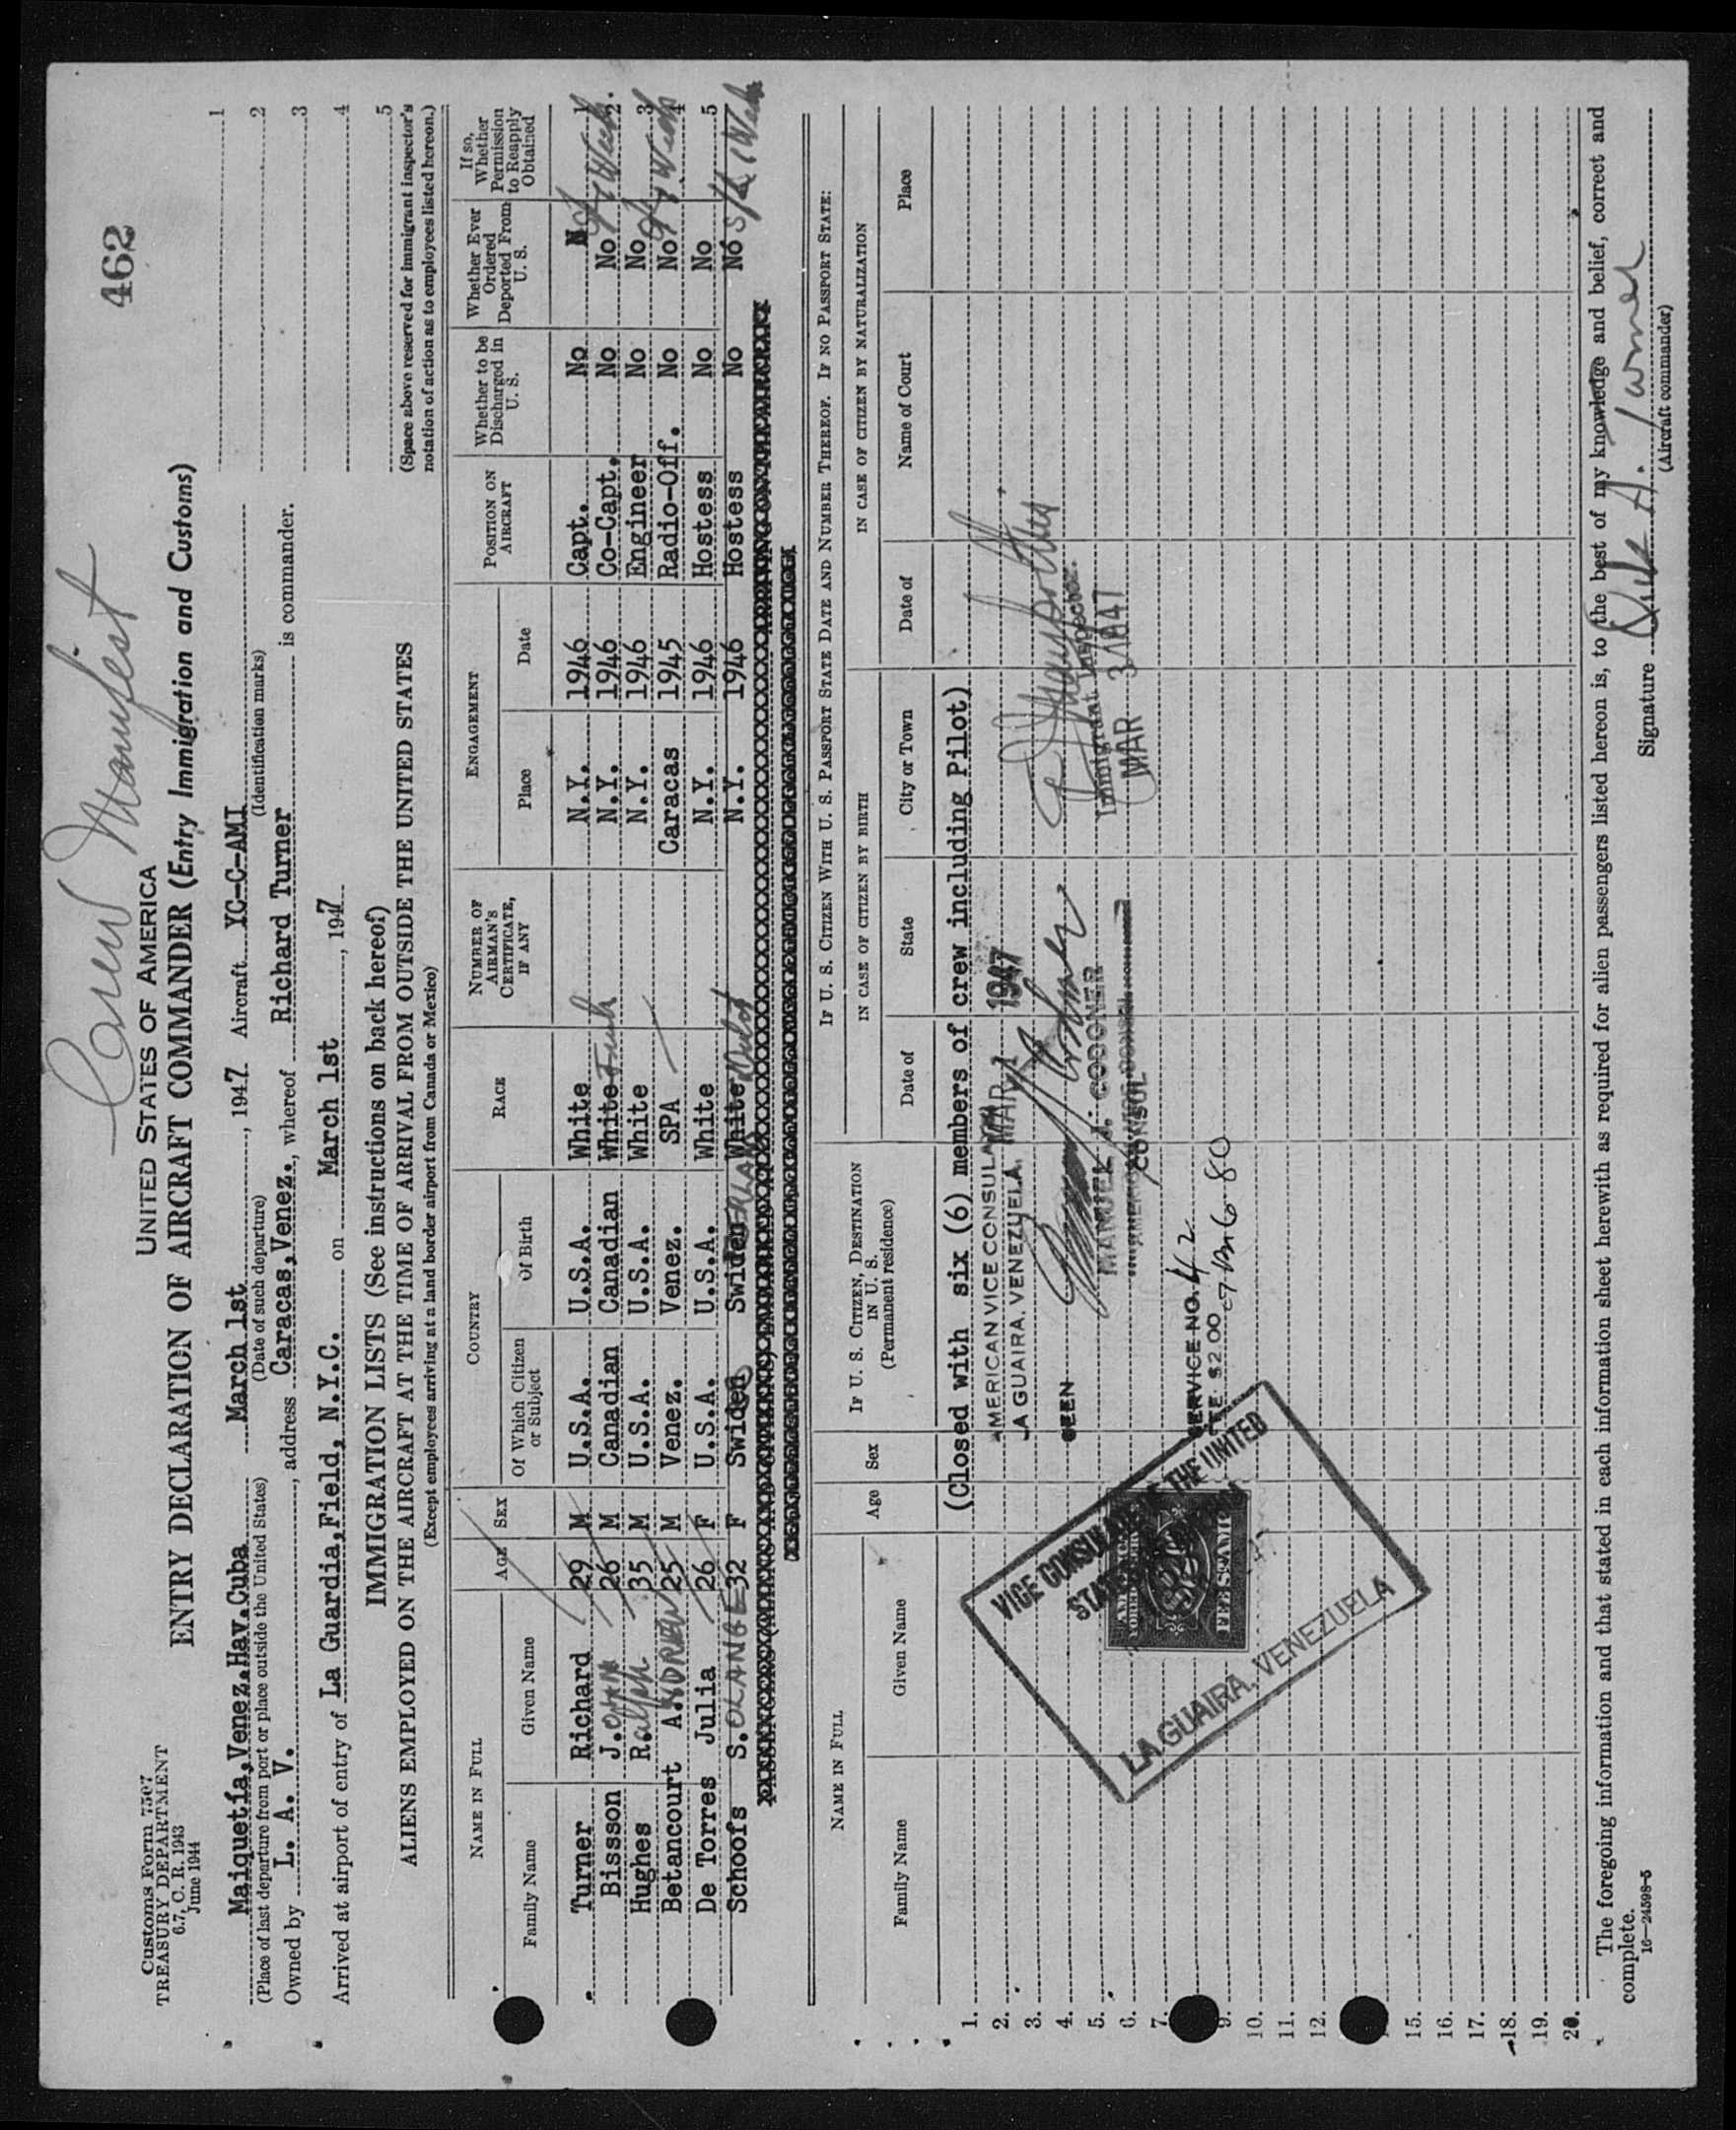 Crew Manifest
462
Customs Form 7507
TREASURY DEPARTMENT
6.7, C. R. 1943
June 1944
UNITED STATES OF AMERICA
ENTRY DECLARATION OF AIRCRAFT COMMANDER (Entry Immigration and Customs)
Maiquetía,Venez.Hav.Cuba March 1st, 1947 Aircraft YC-C-AMI
(Place of last departure from port or place outside the United States) (Date of such departure) (Identification marks)
Owned by L. A. V., address Caracas,Venez., whereof Richard Turner is commander.
Arrived at airport of entry of La Guardia,Field, N.Y.C. on March 1st, 1947
1
2
3
4
5
(Space above reserved for immigrant inspector's
notation of action as to employees listed hereon.)
IMMIGRATION LISTS (See instructions on back hereof)
ALIENS EMPLOYED ON THE AIRCRAFT AT THE TIME OF ARRIVAL FROM OUTSIDE THE UNITED STATES
(Except employees arriving at a land border airport from Canada or Mexico)
NAME IN FULL AGE SEX COUNTRY RACE NUMBER OF AIRMAN'S CERTIFICATE, IF ANY ENGAGEMENT POSITION ON AIRCRAFT Whether to be Discharged in U. S. Whether Ever Ordered Deported From U. S. If so, Whether Permission to Reapply Obtained
Family Name Given Name Of Which Citizen or Subject Of Birth Place Date
Turner Richard 29 M U.S.A. U.S.A. White N.Y. 1946 Capt. No N 1
Bissson J.OHN 26 M Canadian Canadian White French N.Y. 1946 Co-Capt. No No 2.
Hughes Ralph 35 M U.S.A. U.S.A. White N.Y. 1946 Engineer No No 3
Betancourt A.NDREW 25 M Venez. Venez. SPA Caracas 1945 Radio-Off. No No 4
De Torres Julia 26 F U.S.A. U.S.A. White N.Y. 1946 Hostess No No 5
Schoofs S.OLANGE 32 F Swiden Swiden White N.Y. 1946 Hostess No No
IF U. S. CITIZEN WITH U. S. PASSPORT STATE DATE AND NUMBER THEREOF. IF NO PASSPORT STATE:
NAME IN FULL Age Sex IF U. S. CITIZEN, DESTINATION IN U. S. (Permanent residence) IN CASE OF CITIZEN BY BIRTH IN CASE OF CITIZEN BY NATURALIZATION
Family Name Given Name Date of State City or Town Date of Name of Court Place
1. (Closed with six (6) members of crew including Pilot)
2. AMERICAN VICE CONSULATE MAR 1 1947
3. LA GUAIRA, VENEZUELA
4. SEEN
5. MANUEL J. CODONER
Immigrant Inspector.
6. CONSUL
MAR 3 1947
7.
SERVICE NO. 42
9. FEE $2.00
10.
11.
12.
15.
16.
17.
18.
19.
20.
VICE CONSULATE OF THE UNITED
LA GUAIRA, VENEZUELA
FEE STAMP
The foregoing information and that stated in each information sheet herewith as required for alien passengers listed hereon is, to the best of my knowledge and belief, correct and
complete.
16—24598-5
Signature Dick A. Turner
(Aircraft commander)